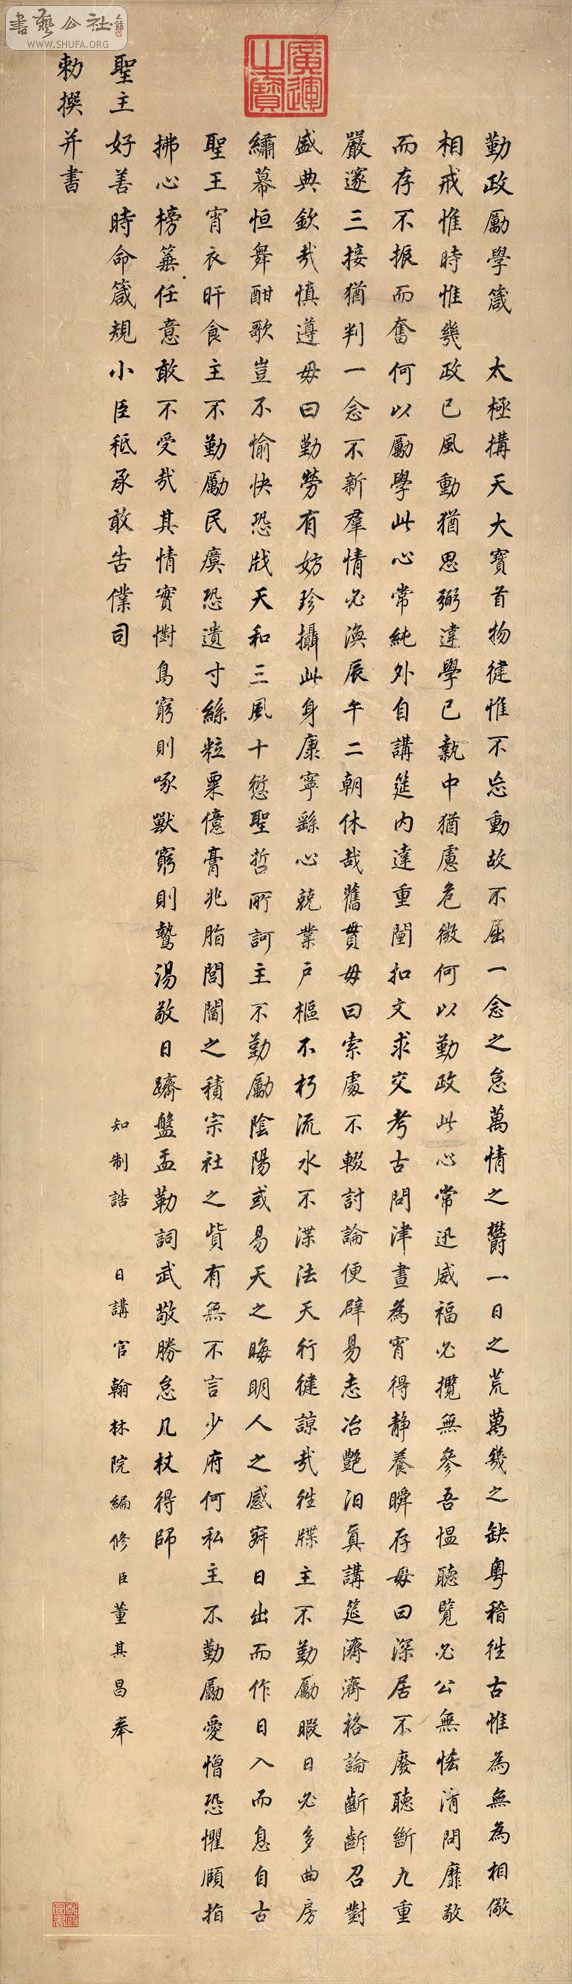 勤政勵學箴　太極搆天大寶首物健惟不忘動故不屈一念之怠萬情之欝一日之荒萬幾之缺粵稽徃古惟為無為相儆
相戒惟時惟幾政已風動猶思弼違學已執中猶慮危微何以勤政此心常迅威福必攬無參吾愠聽覽必公無恡清問靡敢
而存不振而奮何以勵學此心常純外自講筵內達重闈扣文求交考古問津晝為宵得靜養瞬存毋曰深居不廢聽斷九重
嚴邃三接猶判一念不新羣情必渙辰午二朝休哉舊貫毋曰索處不輟討論便辟易志冶艷汨真講筵濟濟格論齗齗召對
盛典欽哉慎遵毋曰勤勞有妨珍攝此身康寧繇心兢業戶樞不朽流水不渫法天行健諒哉徃牒主不勤勵暇日必多曲房
繡幕恒舞酣歌豈不愉快恐戕天和三風十愆聖哲所訶主不勤勵陰陽或易天之晦明人之感寤日出而作日入而息自古
聖王宵衣旰食主不勤勵民瘼恐遺寸絲粒粟億膏兆脂閭閻之積宗社之貲有無不言少府何私主不勤勵愛憎恐懼頤指
拂心榜箠任意敢不受哉其情實懟鳥窮則啄獸窮則鷙湯敬日躋盤盂勒詞武敬勝怠几杖得師
聖主好善時命箴規小臣秪承敢告僕司
知制誥　日講官翰林院編修臣董其昌奉
勅撰并書
廣運之寶
書藝公社
WWW.SHUFA.ORG